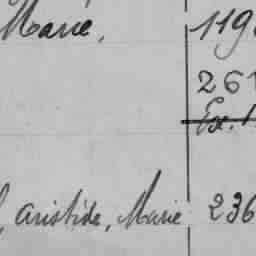 Marie, 119
261
Ex. 1
, aristide, Marie 236